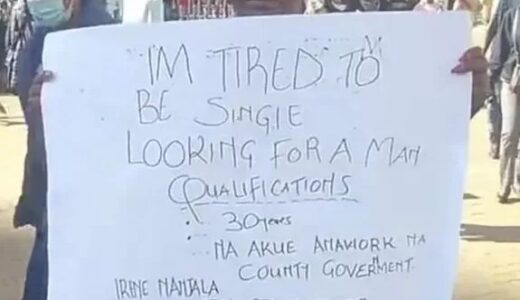 I'M TIRED TO
BE SINGIE
LOOKING FOR A MAN
QUALIFICATIONS
• 30 years
• NA AKUE ANAWORK NA
COUNTY GOVERMENT
IRINE NANTALA